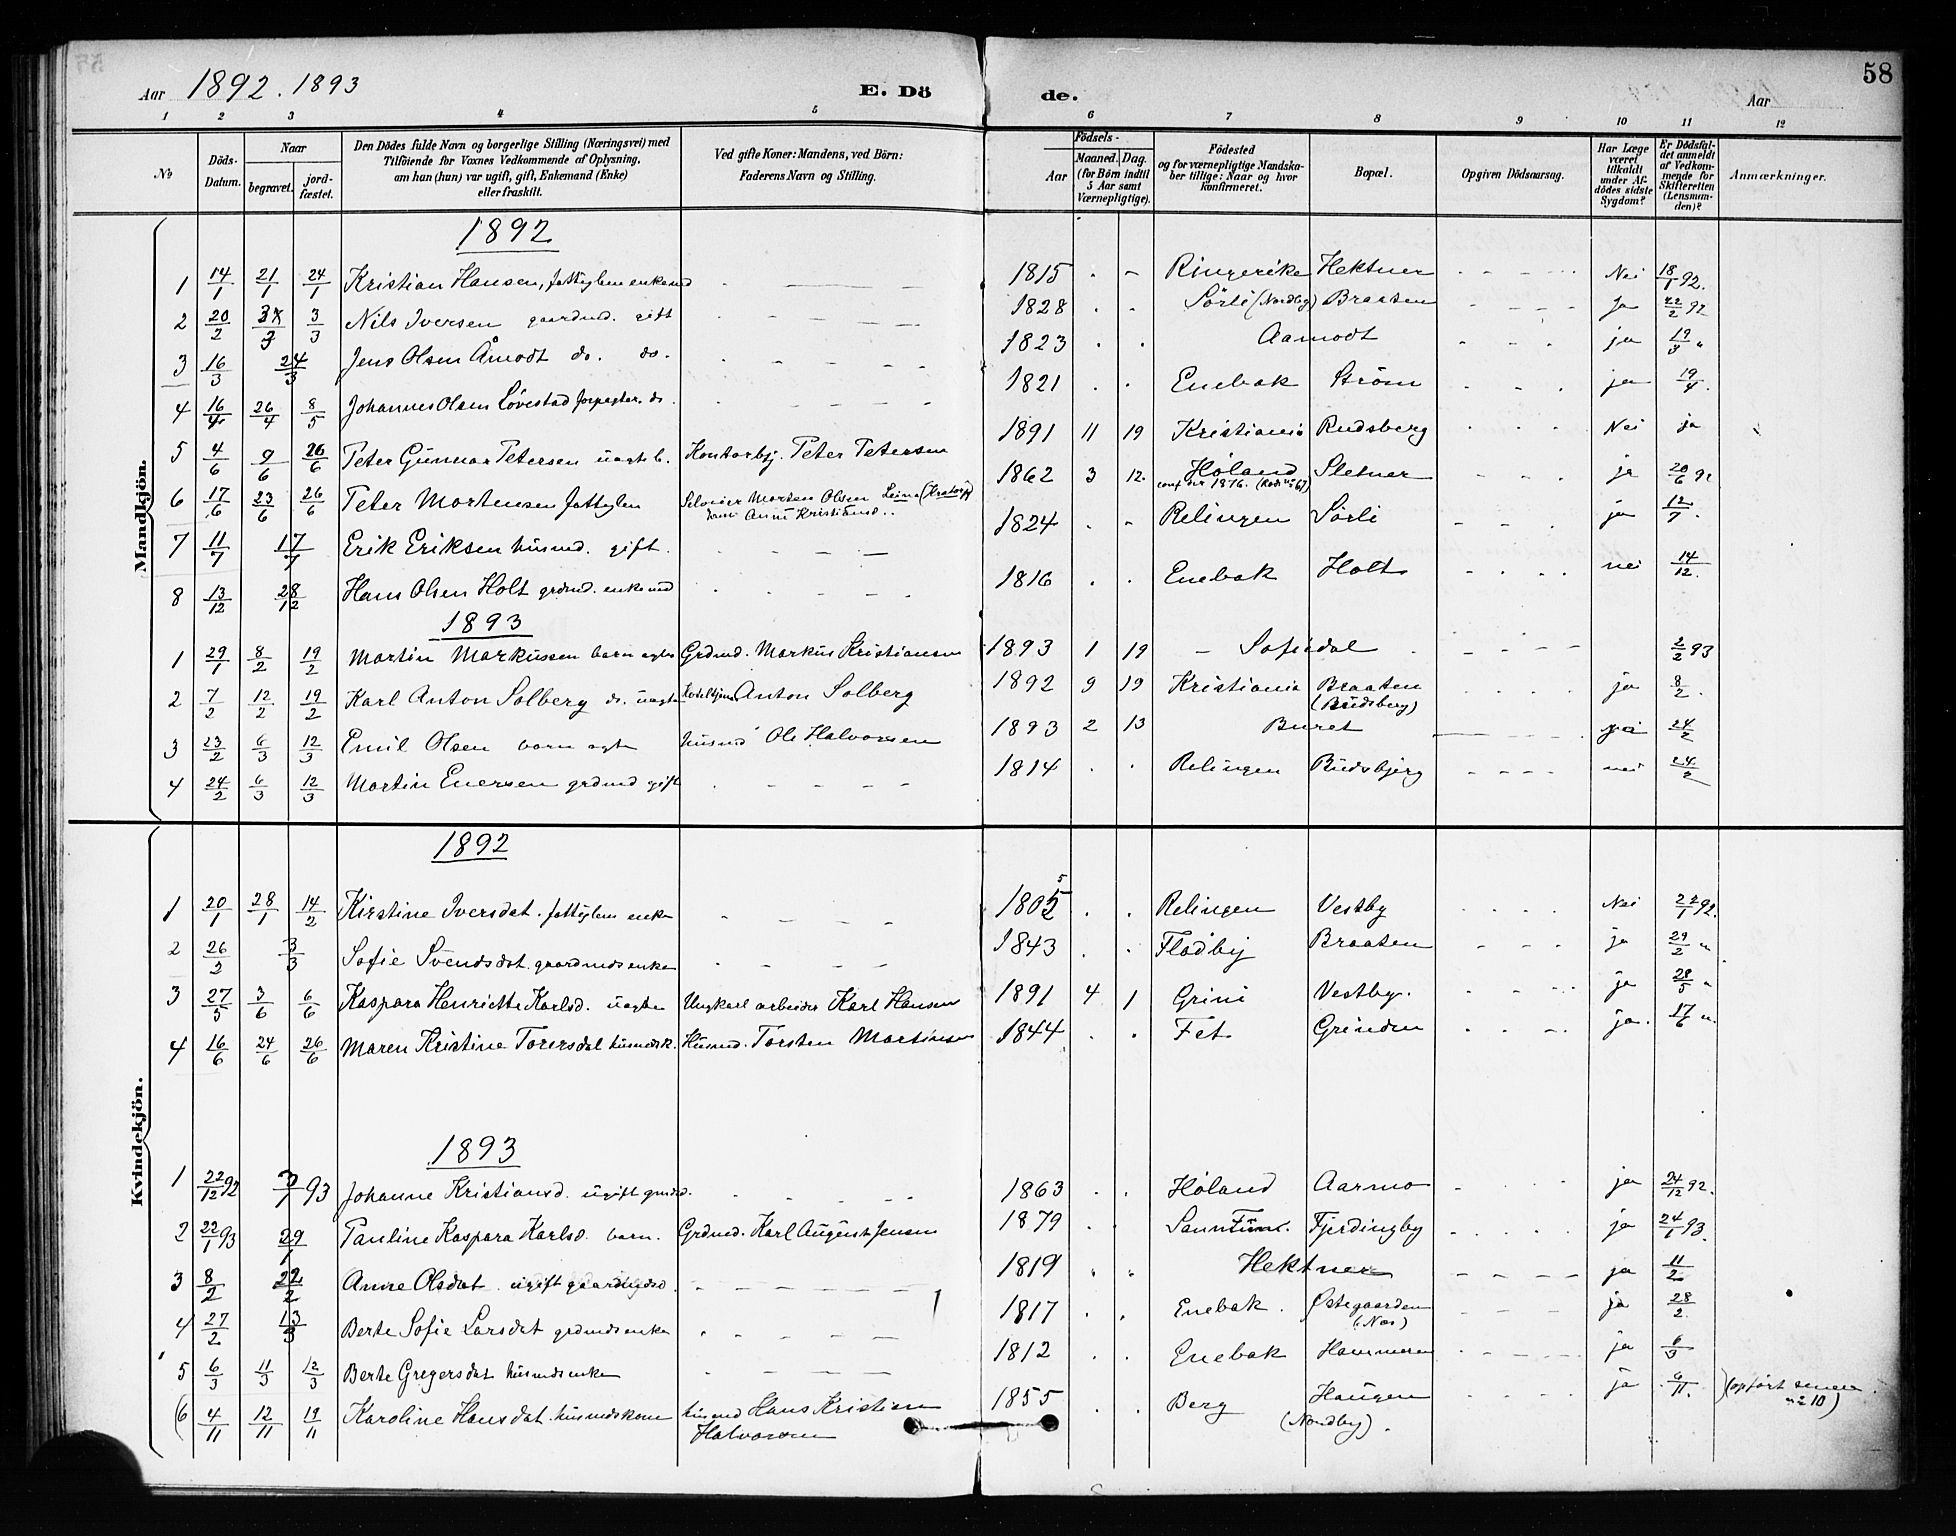 58
Aar 1892. 1893 E. Dö de. Aar
1 2 3 4 5 6 7 8 9 10 11 12
№ | Döds-Datum. | Naar begravet. | jordfæstet. | Den Dödes fulde Navn og borgerlige Stilling (Næringsvei) med Tilföiende for Voxnes Vedkommende af Oplysning, om han (hun) var ugift, gift, Enkemand (Enke) eller fraskilt. | Ved gifte Koner: Mandens, ved Börn: Faderens Navn og Stilling. | Födsels- Aar | Maaned. | Dag. (for Börn indtil 5 Aar samt Værnepligtige). | Födested og for værnepligtige Mandskaber tillige: Naar og hvor konfirmeret. | Bopæl. | Opgiven Dödsaarsag. | Har Læge været tilkaldt under Afdödes sidste Sygdom? | Er Dödsfaldet anmeldt af Vedkommende for Skifteretten (Lensmanden)? | Anmærkninger.
Mandkjön.
1892
1 14/1 21/1 24/1 Kristian Hansen, fattiglem enkemd 1815 Ringerike Hektner Nei 18/1 92.
2 20/2 3/3 3/3 Nils Iversen gaardmd. gift 1828 Sörli (Nordby) Braaten Ja 22/2 92
3 16/3 24/3 Jens Olsen Åmodt do. do. 1823 Aamodt ja 19/3 "
4 16/4 26/4 8/5 Johannes Olsen Lövestad forpagter. do 1821 Enebak Ström ja 19/4.
5 4/6 9/6 26/6 Peter Gunnar Petersen uægte b. Kontorbj. Peter Petersen 1891 11 19 Kristiania Rudsberg Nei ja
6 17/6 23/6 26/6 Peter Mortensen fattiglem Selveier Morten Olsen Anne Kristiansd. 1862 3 12. Höland conf der 1876. Sletner ja 20/6 92
7 11/7 17/7 Erik Eriksen husmd. gift. 1824 Relingen Sörli ja 12/7.
8 13/12 28/12 Hans Olsen Holt grdmd. enkemd 1816 Enebak Holt nei 14/12.
1893
1 29/1 8/2 19/2 Martin Markussen barn ægte Grdmd. Markus Kristiansen 1893 1 19 - Sofiedal 2/2 93
2 7/2 12/2 19/2 Karl Anton Solberg do. uægte Anton Solberg 1892 9 19 Kristiania Braaten (Budsberg) ja 8/2.
3 23/2 6/3 12/3 Emil Olsen barn ægte husmd Ole Halvorsen 1893 2 13 Buret 24/2
4 24/2 6/3 12/3 Martin Enersen grdmd gift 1814 Relingen Budsbjerg nei 24/2
Kvindekjön.
1892
1 20/1 28/1 14/2 Kirstine Iversdat. fattiglem enke 1805 5 Relingen Vestby Nei 22/1 92.
2 26/2 3/3 Sofie Svendsdat. gaardmdsenke 1843 Fladby Braaten ja 29/2 "
3 27/5 3/6 6/6 Kaspara Henriette Karlsd. uægte Ungkarl arbeider Karl Hansen 1891 4 1 Grini Vestby. ja 28/5 "
4 16/6 24/6 26/6 Maren Kristine Torersdat husmdsk. Husmd. Torsten Martinsen 1844 Fet Grinden ja. 17/6 "
1893
1 22/12 92 3/1 93 Johanne Kristiansd. ugift grdmd. 1863 Höland Aarmo ja 24/12 92.
2 22/1 93 29/1 Pauline Kaspara Karlsd. barn. Grdmd. Karl August Jensen 1879 Fjerdingby ja 24/1 93.
3 8/2 22/2 Anne Olsdat. ugift 1819 Hektner ja 11/2
4 27/2 13/3 Berte Sofie Larsdat grdmdsenke 1817 Enebak. Østegaarden (Næs) ja 28/2.
5 6/3 11/3 12/3 Berte Gregersdat husmdsenke 1812 Enebak Hammeren ja 6/3
(6 4/11 12/11 19/11 Karoline Hansdat. husmdskone husmd Hans Kristian Halvorsen 1855 Berg Haugen (Nordby). ja 6/11. (opfört senere № 10)